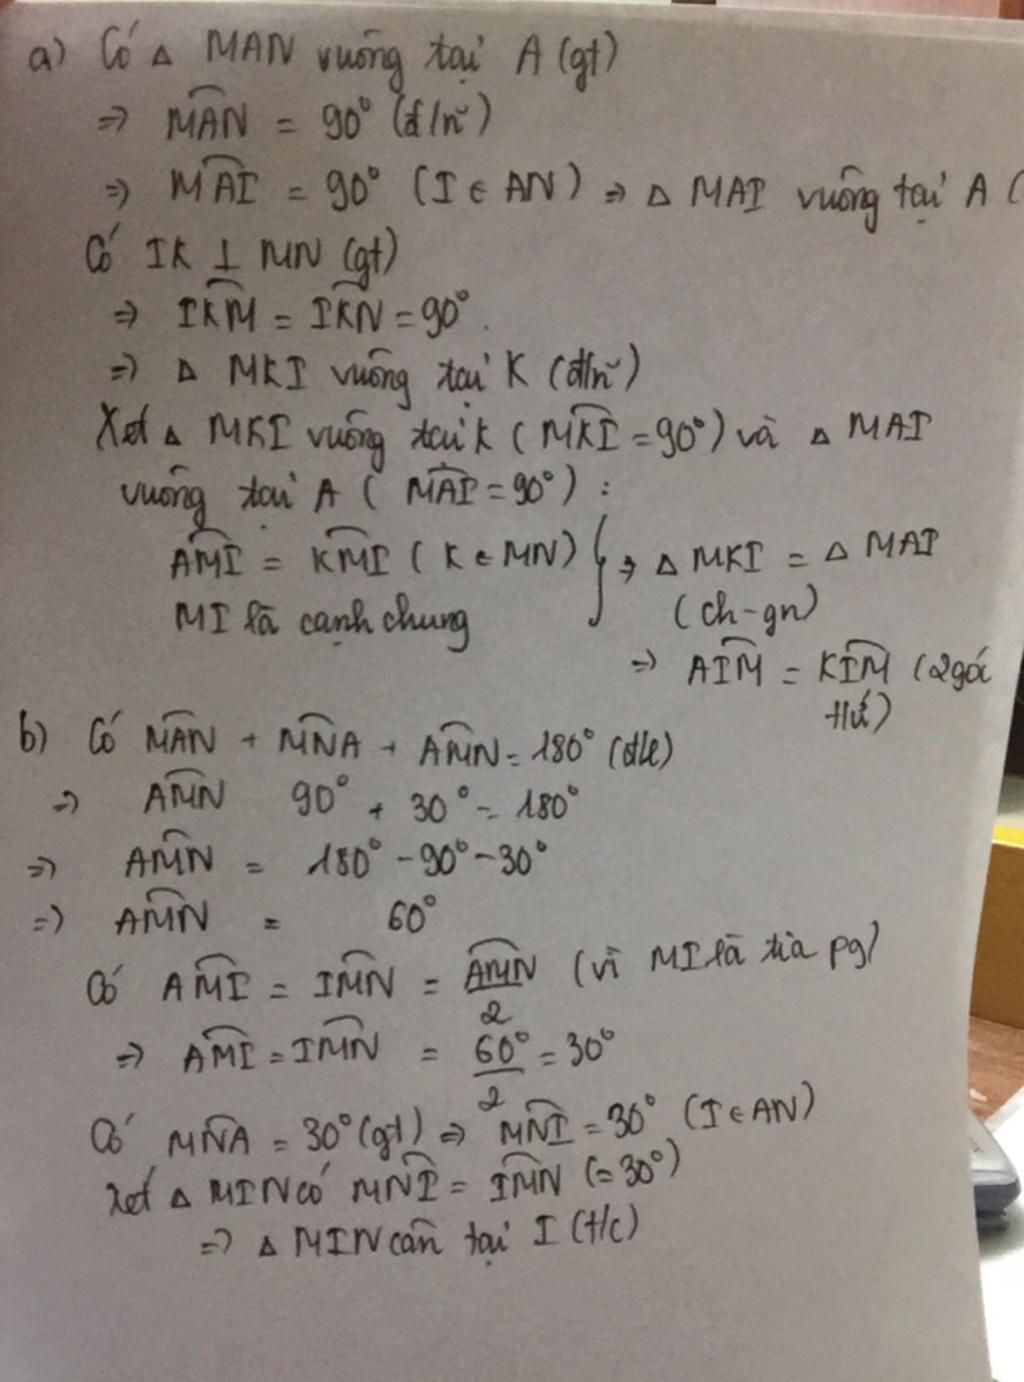 a) Có △ MAN vuông tại A (gt)
=> MAN = 90° (đ/n~)
=> MAI = 90° (I ∈ AN) => △ MAI vuông tại A (
Có IK ⊥ MN (gt)
=> IKM = IKN = 90°.
=> △ MKI vuông tại K (đ/n~)
Xét △ MKI vuông tại K ( MKI = 90°) và △ MAI
vuông tại A ( MAI = 90°) :
AMI = KMI ( K ∈ MN) } => △ MKI = △ MAI
MI là cạnh chung (ch-gn)
=> AIM = KIM (2 góc
tứ)
b) Có MAN + MNA + AMN = 180° (đ/l)
=> AMN 90° + 30° = 180°
=> AMN = 180° - 90° - 30°
=> AMN = 60°
Có AMI = IMN = AMN/2 (vì MI là tia pg)
=> AMI = IMN = 60°/2 = 30°
Có MNA = 30° (gt) => MNI = 30° (I ∈ AN)
Xét △ MIN có MNI = IMN (= 30°)
=> △ MIN cân tại I (t/c)